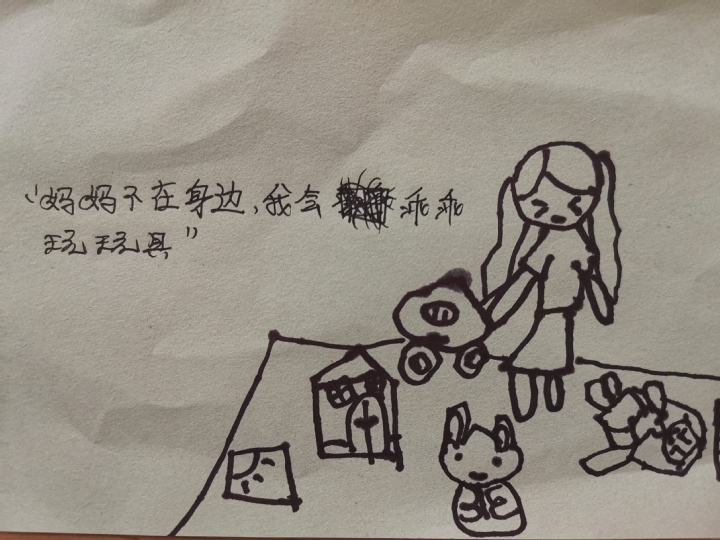 “妈妈不在身边,我会乖乖
玩玩具”